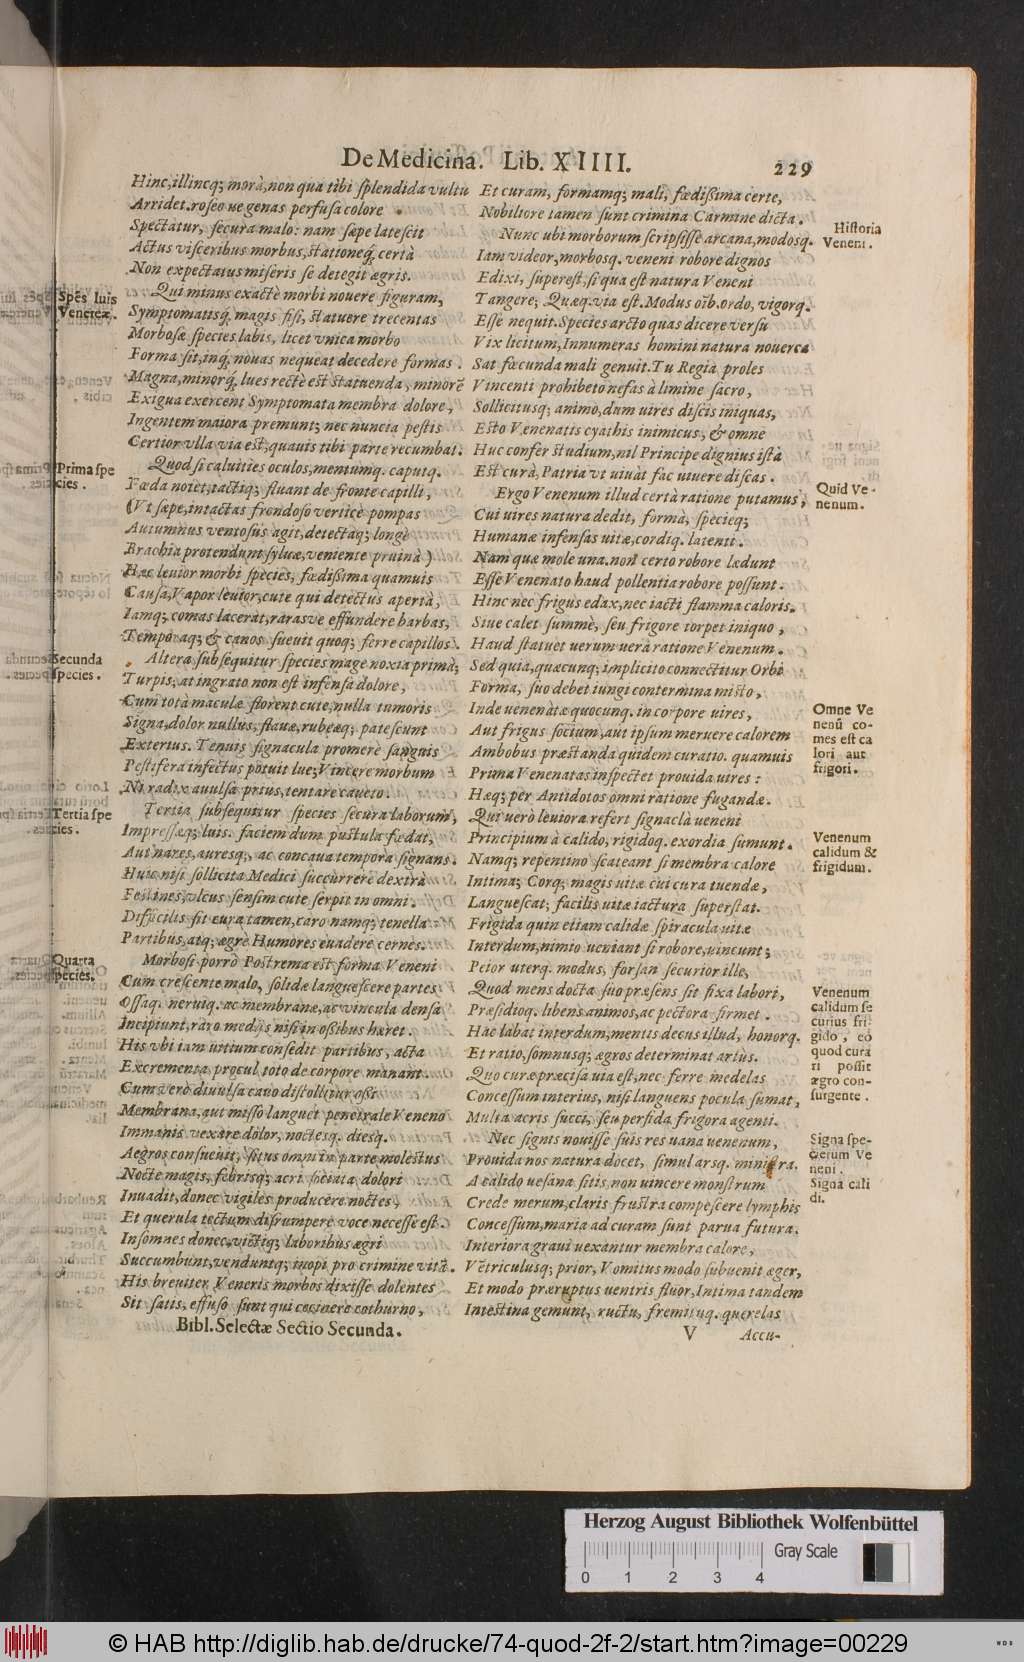 De Medicina. Lib. XIIII. 229
Hinc, illincq; morà, non qua tibi splendida vultu
Arridet. roseo ue genas perfusa colore
Spectatur, secura malo: nam sæpe latescit
Actus visceribus morbus, stationeq́, certà
Non expectatus miseris se detegit ægris.
Qui minus exactè morbi novere figuram,
Symptomattsq́, magis fisi, statuere trecentas
Morbosæ species labis, licet vnica morbo
Forma sit, inq́, nouas nequeat decedere formas.
Magna, minorq́, lues rectè est statuenda, minorē
Exigua exercent Symptomata membra dolore,
Ingentem maiora premunt; nec nuncia pestis
Certior vlla via est, quauis tibi parte recumbat.
Quod si caluities oculos, mentumq. caputq.
Fæda notet, tactiq; fluant de fronte capilli,
(Vt sæpe, intactas frondoso vertice pompas
Autumnus ventosus agit, detectaq; longè
Brachia protendunt syluæ, veniente pruinà)
Hæc leuior morbi species, fædissima quamuis
Causa, Vapor leuior, cute qui detectus apertà,
Iamq; comas lacerat, rarasve effundere barbas,
Temporaq; & canos sueuit quoq; ferre capillos.
Altera subsequitur species mage noxia primà;
Turpis, at ingrato non est infensa dolore,
Cum totà maculæ florent cute, nulla tumoris
Signa, dolor nullus, flauæ, rubeæq; patescunt
Exterius. Tenuis signacula promere sanguis
Pestifera infectus potuit lue; Vincere morbum
Ni radix auulsa prius, tentare caueto.
Tertia subsequitur species secura laborum,
Impressæq; luis. faciem dum pustula fœdat,
Aut nares, auresq;, ac concaua tempora signans.
Huic nisi sollicita Medici succurrere dextrà
Festines, vlcus sensim cute serpit in omni.
Difficilis sit cura tamen, caro namq; tenella
Partibus, atq; ægrè Humores euadere cernes.
Morbosi porrò Postrema est forma Veneni
Cum crescente malo, solidæ languescere partes
Ossaq. neruiq. ac membranæ, ac vincula densa
Incipiunt, raro medijs nisi in ossibus hæret.
His vbi iam uitium consedit partibus, acta
Excrementa procul toto de corpore manant.
Cum verò diuulsa cauo distollitur ossi
Membrana, aut misso languet penetrale Veneno
Immanis vexare dolor, noctesq. diesq.
Aegros consueuit, situs omni in parte molestus
Nocte magis, febrisq; acri sociata dolori
Inuadit, donec vigiles producere noctes,
Et querula tectum disrumpere voce necesse est.
Insomnes donec, victiq; laboribus ægri
Succumbunt, venduntq; suopi pro crimine vitā.
His breuiter Veneris morbos dixisse dolentes
Sit satis, effuso sunt qui cecinere cothurno,
Bibl. Selectæ Sectio Secunda.
Spēs luis
Venereæ.
Prima spe
cies.
Secunda
species.
Tertia spe
cies.
Quarta
species.
Et curam, formamq; mali, fœdissima certe,
Nobiliore tamen sunt crimina Carmine dicta.
Nunc ubi morborum scripsisse arcana, modosq.
Iam videor, morbosq. veneni robore dignos
Edixi, superest, si qua est natura Veneni
Tangere; Quæq. via est. Modus oīb. ordo, vigorq.
Esse nequit. Species arcto quas dicere versu
Vix licitum, Innumeras homini natura nouerca
Sat fœcunda mali genuit. Tu Regia proles
Vincenti prohibeto nefas à limine sacro,
Sollicitusq; animo, dum uires discis iniquas,
Esto Venenatis cyathis inimicus, & omne
Huc confer studium, nil Principe dignius istà
Est curà, Patria vt uiuàt fac uiuere discas.
Ergo Venenum illud certà ratione putamus,
Cui uires natura dedit, formà, specieq;
Humanæ infensas uitæ, cordiq. latenti.
Nam quæ mole una. non certo robore lædunt
Esse Venenato haud pollentia robore possunt.
Hinc nec frigus edax, nec iacti flamma caloris.
Siue calet summè, seu frigore torpet iniquo,
Haud statuet uerum uerà ratione Venenum.
Sed quia, quæcunq; implicito connectitur Orbe
Forma, suo debet iungi contermina misto,
Inde uenenàtæ quocunq. in corpore uires,
Aut frigus socium, aut ipsum meruere calorem
Ambobus præstanda quidem curatio. quamuis
Prima Venenatas inspectet prouida uires:
Hæq; per Antidotos omni ratione fugandæ.
Qui uerò leuiora refert signaclà ueneni
Principium à calido, rigidoq. exordia sumunt.
Namq; repentino scateant si membra calore
Intima; Corq; magis uitæ cui cura tuendæ,
Languescat; facilis uitæ iactura superstat.
Frigida quin etiam calidæ spiracula uitæ
Interdum, nimio ueniant si robore, uincunt;
Peior uterq. modus, forsan securior ille,
Quod mens docta suo præsens sit fixa labori,
Præsidioq. libens animos, ac pectora firmet.
Hæc labat interdum, mentis decus illud, honorq.
Et ratio, somnusq; ægros determinat artus.
Quo curæ præcisa uia est, nec ferre medelas
Concessum interius, nisi languens pocula sumat,
Multa acris succi, seu perfida frigora agenti.
Nec signis nouisse suis res uana uenenum,
Prouida nos natura docet, simul arsq. ministra.
A calido uesana sitis, non uincere monstrum
Crede merum, claris frustra compescere lymphis
Concessum, maria ad curam sunt parua futura.
Interiora graui uexantur membra calore,
Vētriculusq; prior, Vomitus modo subuenit æger,
Et modo præruptus uentris fluor, Intima tandem
Intestina gemunt, ructu, fremituq. querelas
V Accu-
Historia
Veneni.
Quid Ve-
nenum.
Omne Ve
nenū co-
mes est ca
lori aut
frigori.
Venenum
calidum &
frigidum.
Venenum
calidum se
curius fri-
gido, eò
quod cura
ri possit
ægro con-
surgente.
Signa spe-
cierum Ve
neni.
Signa cali
di.
Herzog August Bibliothek Wolfenbüttel
Gray Scale
0 1 2 3 4
© HAB http://diglib.hab.de/drucke/74-quod-2f-2/start.htm?image=00229